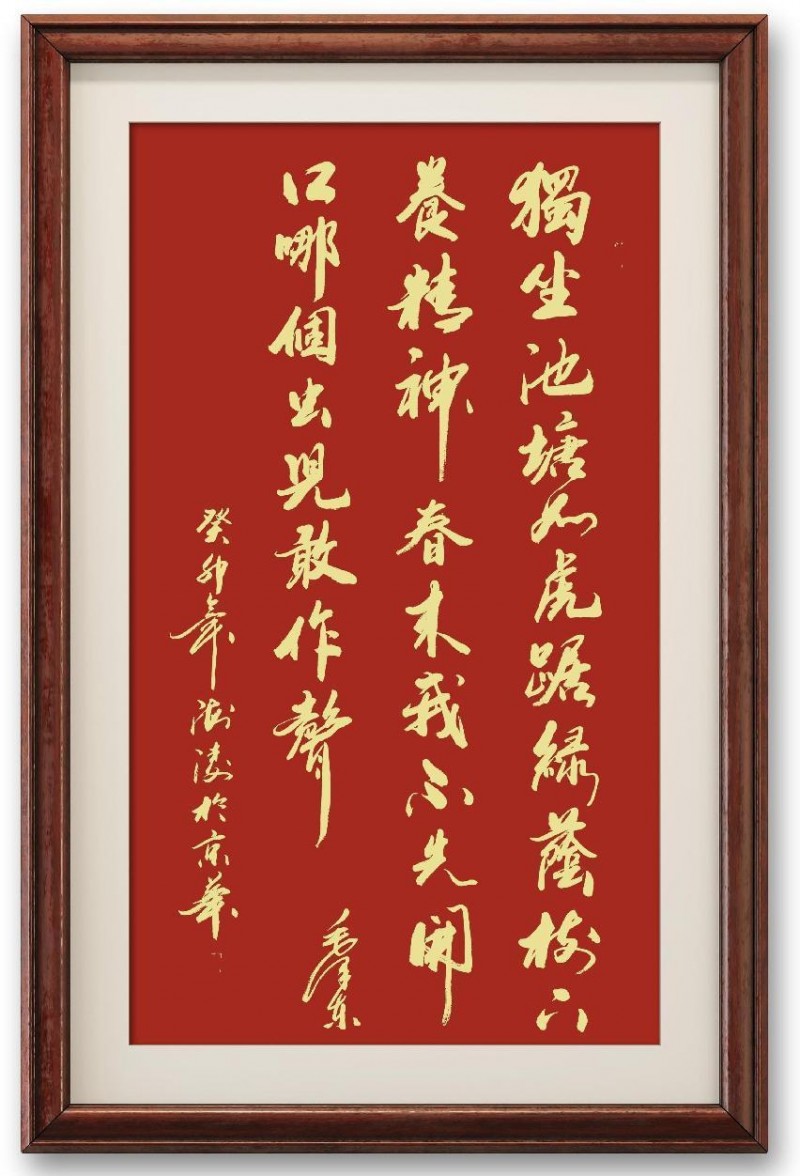 獨坐池塘如虎踞綠蔭樹下
養精神春來我不先開
口哪個虫兒敢作聲
毛澤东
癸卯年於京華